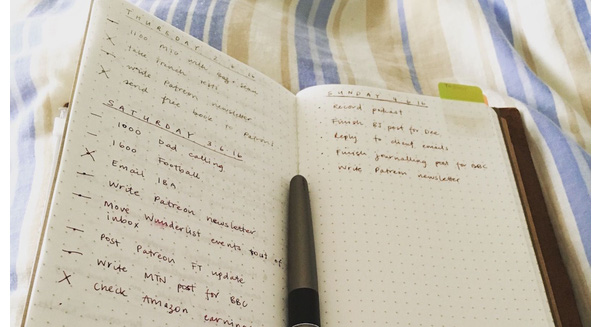 THURSDAY 2.6.16
— 1130 MTG with
× Take French
× write Patreon newsletter
— send free book to Patreon
SATURDAY 3.6.16
— 1000 Dad calling
× 1600 Football
× Email IBA
— Write Patreon newsletter
— Move Wunderlist events out of
inbox
— Post Patreon FT update
— Write MTN post for BBC
× Check Amazon earnings
SUNDAY
· Record podcast
· Finish post for Dee
· Reply to client emails
· Finish journalling post for BBC
· Write Patreon newsletter